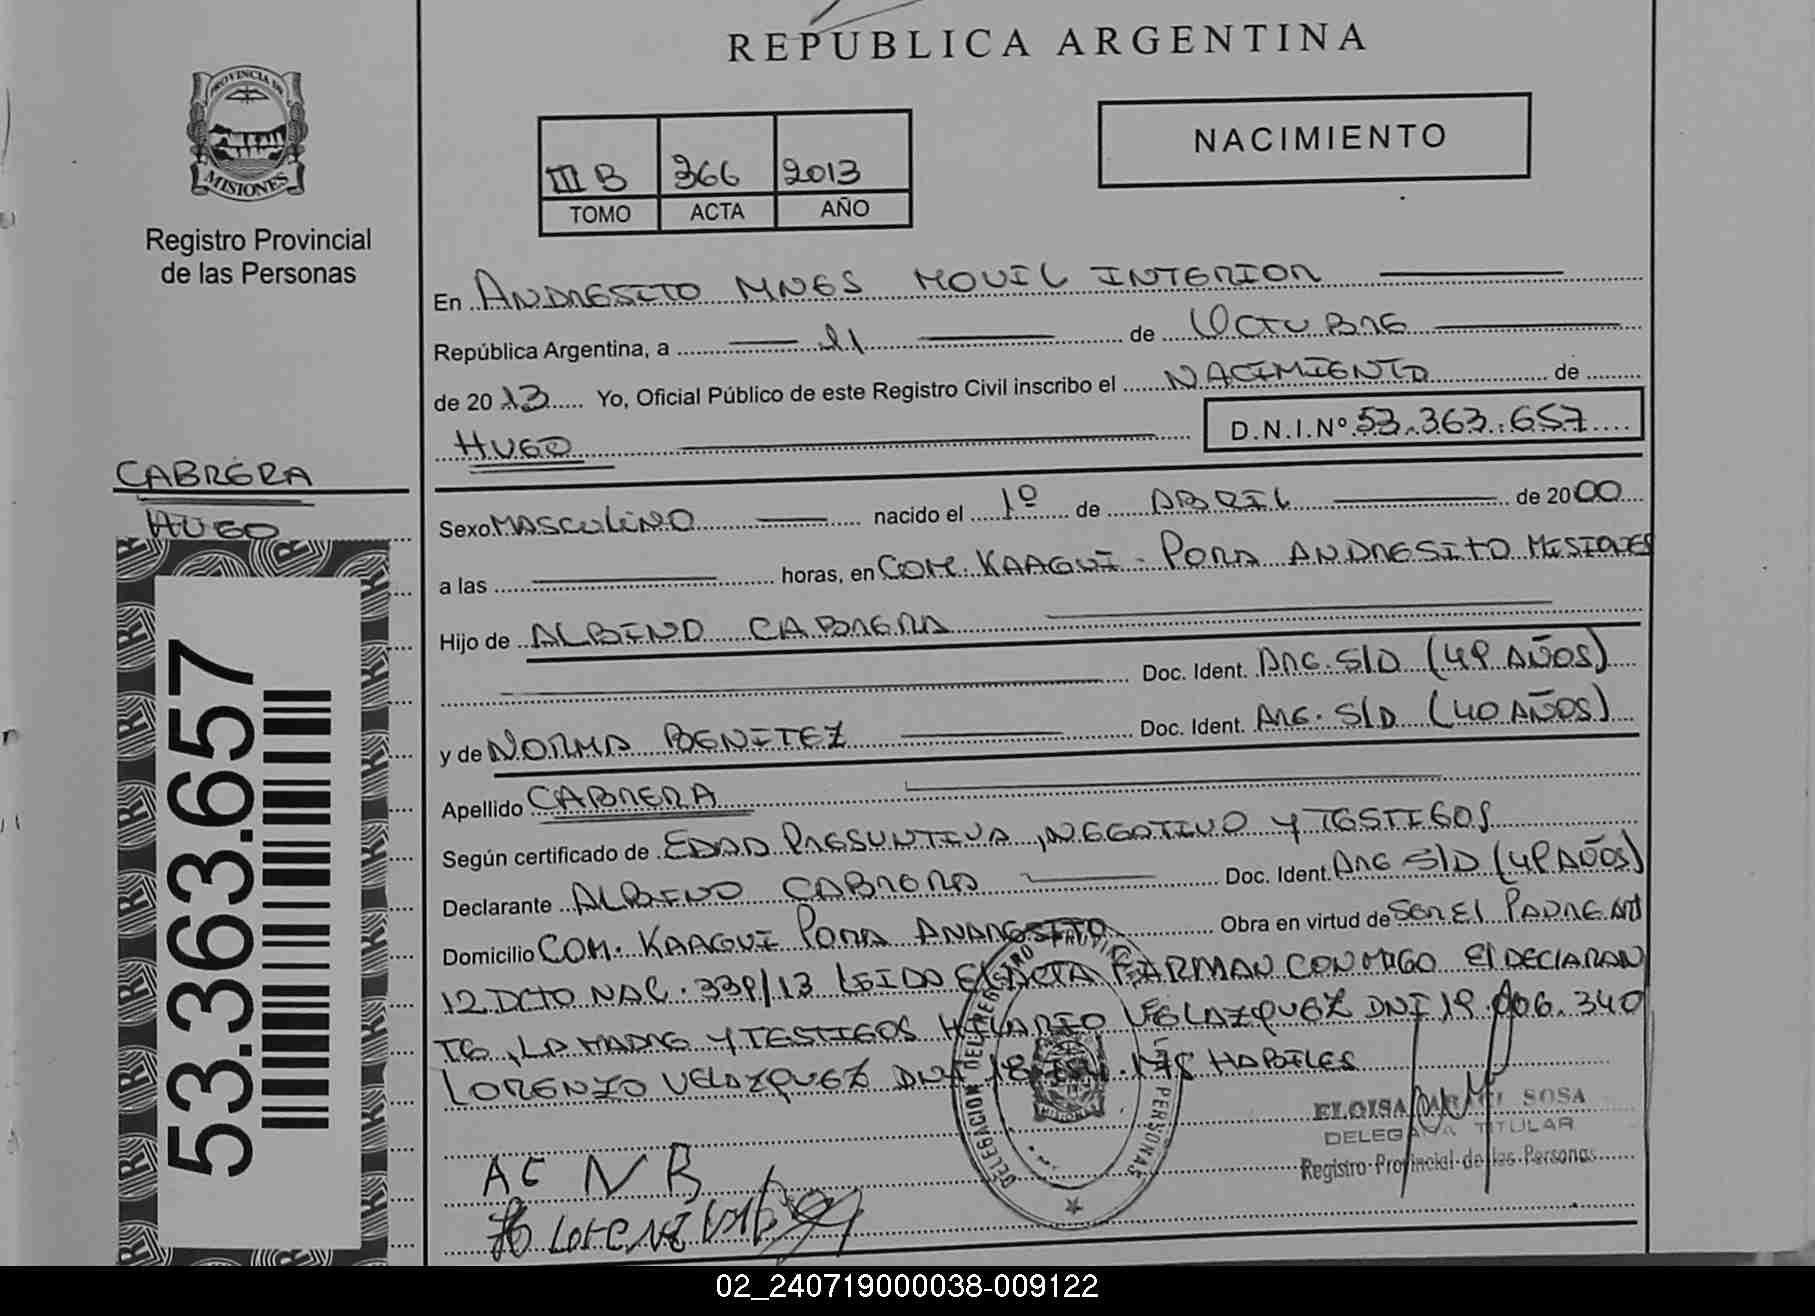 REPUBLICA ARGENTINA
PROVINCIA DE
MISIONES
Registro Provincial
de las Personas
NACIMIENTO
III B 366 2013
TOMO ACTA AÑO
En ANDRESITO MNES MOVIL INTERIOR
República Argentina, a 21 de OCTUBRE
de 2013 Yo, Oficial Público de este Registro Civil inscribo el NACIMIENTO de
HUGO D.N.I.Nº 53.363.657
CABRERA
HUGO
53.363.657
Sexo MASCULINO nacido el 1º de ABRIL de 2000
a las horas, en COM. KAAGUI - PORA ANDRESITO MISIONES
Hijo de ALBINO CABRERA
Doc. Ident. ARG. S/D (49 AÑOS)
y de NORMA BENITEZ Doc. Ident. ARG. S/D (40 AÑOS)
Apellido CABRERA
Según certificado de EDAD PRESUNTIVA, NEGATIVO Y TESTIGOS
Declarante ALBINO CABRERA Doc. Ident. ARG S/D (49 AÑOS)
Domicilio COM. KAAGUI PORA ANDRESITO Obra en virtud de SER EL PADRE. Art
12 DCTO NAC. 339/13 LEIDO EL ACTA FIRMAN CONMIGO El DECLARAN
TE, LA MADRE Y TESTIGOS HILARIO VELAZQUEZ DNI 19.006.340
LORENZO VELAZQUEZ DNI 18 .178 HABILES
DELEGACION DEL REGISTRO PROVINCIAL PERSONAS
ELOISA SOSA
DELEGADA TITULAR
Registro Provincial de las Personas
AC NB
02_240719000038-009122